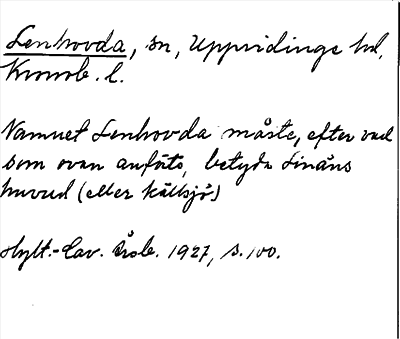 Lenhovda, sn, Uppvidinge hd,
Kronob. l.
Namnet Lenhovda måste, efter vad
som ovan anförts, betyda Linåns
huvud (eller källsjö)
Hylt.-Cav. årsb. 1927, s. 100.